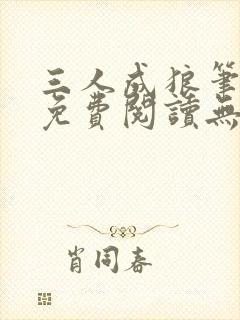 三人成狼筆
免費閱讀無
肖同春